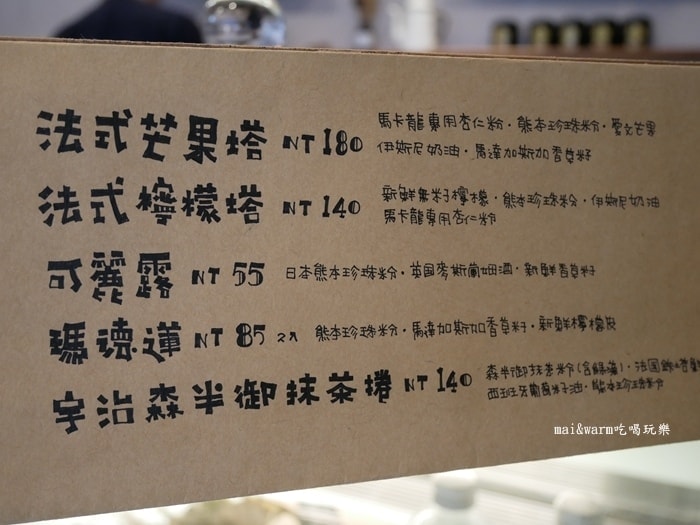 法式芒果塔 NT 180
馬卡龍專用杏仁粉·熊本珍珠粉·愛文芒果
伊斯尼奶油·馬達加斯加香草籽
法式檸檬塔 NT 140
新鮮無籽檸檬·熊本珍珠粉·伊斯尼奶油
馬卡龍專用杏仁粉
可麗露 NT 55
日本熊本珍珠粉·英国麥斯蘭姆酒·新鮮香草籽
瑪德蓮 NT 85 2入
熊本珍珠粉·馬達加斯加香草籽·新鮮檸檬皮
宇治森半御抹茶捲 NT 140
森半御抹茶粉(含綠藻)·法国
西班牙葡萄籽油·熊本珍珠粉
mai&warm吃喝玩樂